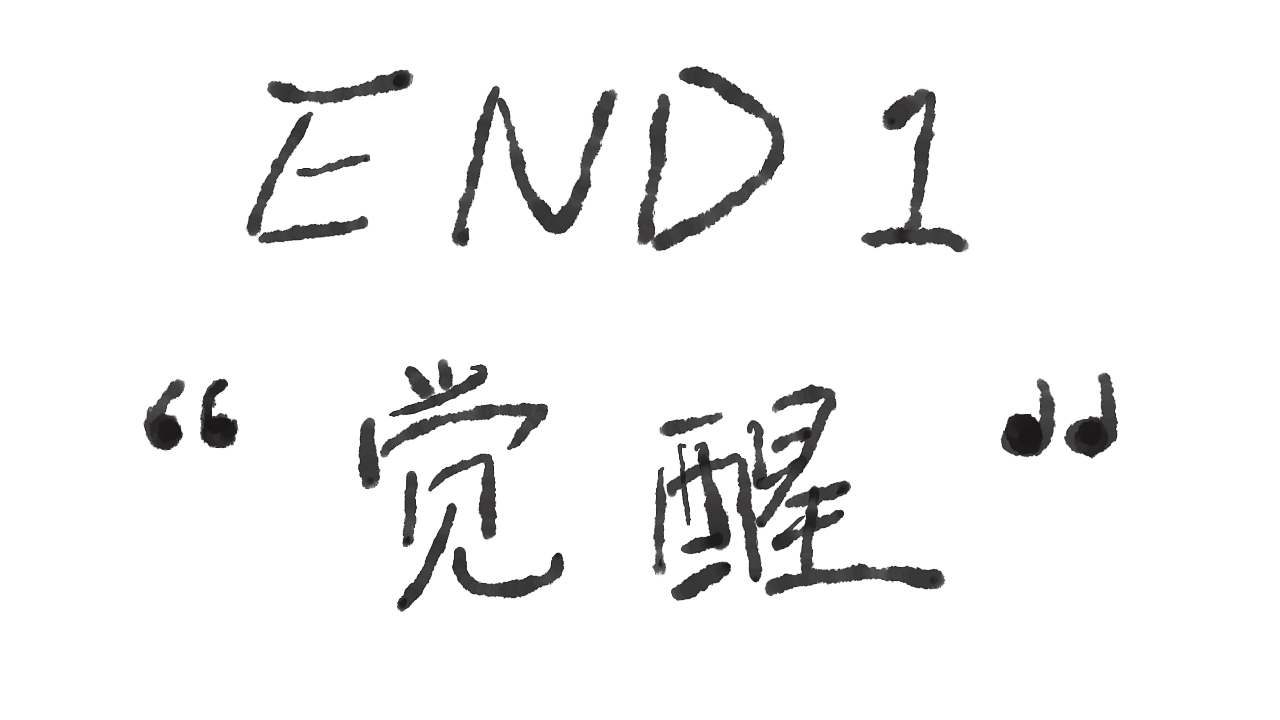 END 1
“觉醒”